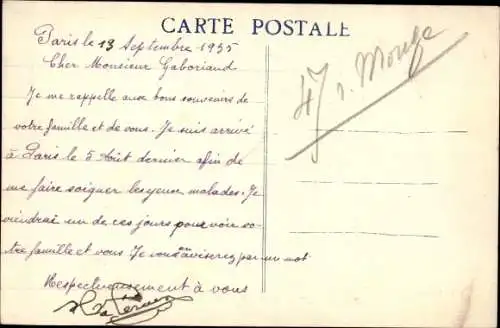 CARTE POSTALE
Paris le 13 Septembre 1935
Cher Monsieur Gaboriaud
Je me rappelle aux bons souvenirs de
votre famille et de vous. Je suis arrivé
à Paris le 5 Août dernier afin de
me faire soigner les yeux malades. Je
viendrai un de ces jours pour voir vo-
tre famille et vous Je vous aviserez par un mot.
Respectueusement à vous
47 r. Monge